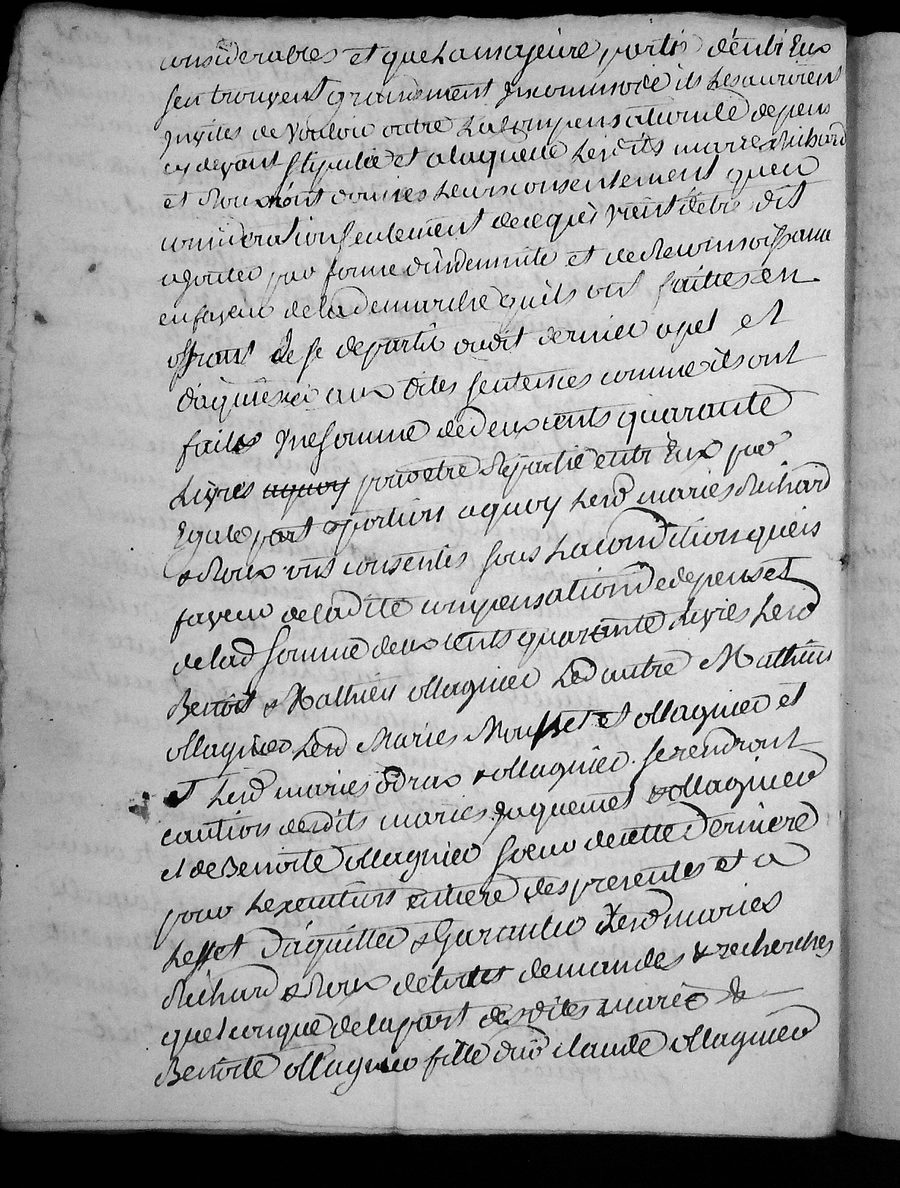 considerables et que La majeure partie d'entr Eux
sen trouvent grandement Incommodé ils Les auroient
Invités de Vouloir outre La Compensation de depens
cy devant Stipulée et a laquelle Lesdits mariés Richard
et Roux n'ont donnés Leurs consentement qu'en
consideration seulement de ce qui vient d'etre dit
ajouter par forme d'indemnité et de Reconnoissance
en faveur de la demarche qu'ils ont faittes en
offrant de se departir dudit dernier apel et
d'aquiescer aux dites sentences comme ils ont
faits Une somme de deux cents quarante
Livres aquoy pour etre Repartie entr Eux par
Egale part & portion aquoy Lesd maries Richard
& Roux ont consentis sous La condition qu'en
faveur de la dite compensation de depens et
de lad somme deux cents quarante Livres Lesd
Benoit & Mathieu ollagnier Led autre Mathieu
ollagnier Lesd Maries Mousset et ollagnier et
et Lesd maries odrax & ollagnier se rendront
caution desdits maries Jaquemet & ollagnier
et de Benoite ollagnier soeur de cette Derniere
pour Lexecution entiere des presentes et a
Leffet d'aquitter & Garantir Lesd maries
Richard & Roux de toutes demandes & recherches
quelconque de la part desdites mariés &
Benoite ollagnier fille dud claude ollagnier